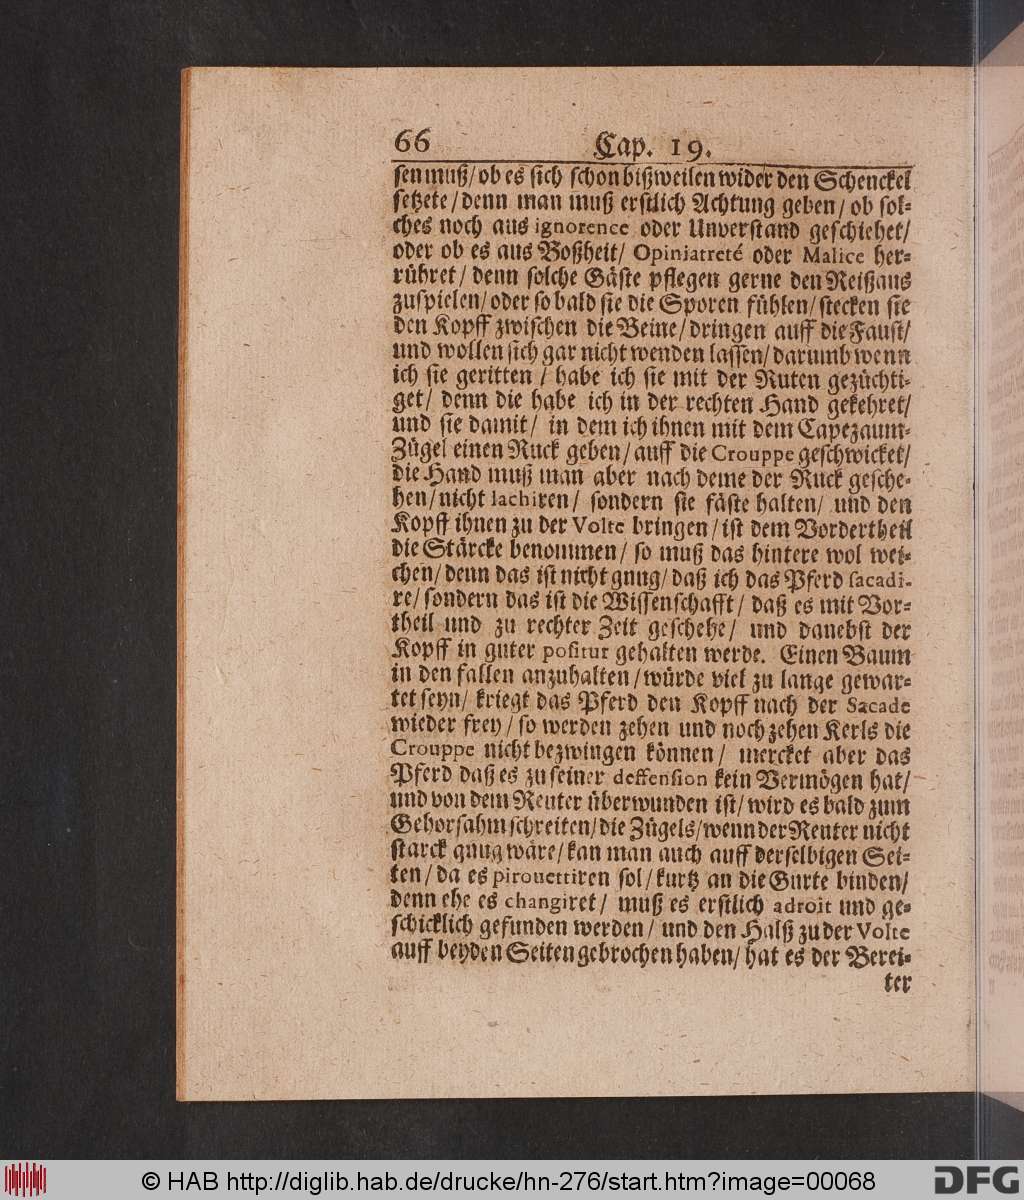 66 Cap. 19.
sen muß/ ob es sich schon bißweilen wider den Schenckel
setzete/ denn man muß erstlich Achtung geben/ ob sol-
ches noch aus ignorence oder Unverstand geschiehet/
oder ob es aus Boßheit/ Opiniatreté oder Malice her-
rühret/ denn solche Gäste pflegen gerne den Reißaus
zuspielen/ oder so bald sie die Sporen fühlen/ stecken sie
den Kopff zwischen die Beine/ dringen auff die Faust/
und wollen sich gar nicht wenden lassen/ darumb wenn
ich sie geritten / habe ich sie mit der Ruten gezüchti-
get/ denn die habe ich in der rechten Hand gekehret/
und sie damit/ in dem ich ihnen mit dem Capezaum-
Zügel einen Ruck geben/ auff die Crouppe geschwicket/
die Hand muß man aber nach deme der Ruck gesche-
hen/ nicht lachiren/ sondern sie fäste halten/ und den
Kopff ihnen zu der Volte bringen/ ist dem Vordertheil
die Stärcke benommen/ so muß das hintere wol wei-
chen/ denn das ist nicht gnug/ daß ich das Pferd sacadi-
re/ sondern das ist die Wissenschafft/ daß es mit Vor-
theil und zu rechter Zeit geschehe/ und danebst der
Kopff in guter positur gehalten werde. Einen Baum
in den fallen anzuhalten/ würde viel zu lange gewar-
tet seyn/ kriegt das Pferd den Kopff nach der Sacade
wieder frey/ so werden zehen und noch zehen Kerls die
Crouppe nicht bezwingen können/ mercket aber das
Pferd daß es zu seiner deffension kein Vermögen hat/
und von dem Reuter überwunden ist/ wird es bald zum
Gehorsahm schreiten/ die Zügels/ wenn der Reuter nicht
starck gnug wäre/ kan man auch auff derselbigen Sei-
ten/ da es pirouettiren sol/ kurtz an die Gurte binden/
denn ehe es changiret/ muß es erstlich adroit und ge-
schicklich gefunden werden/ und den Halß zu der Volte
auff beyden Seiten gebrochen haben/ hat es der Berei-
ter
© HAB http://diglib.hab.de/drucke/hn-276/start.htm?image=00068
DFG